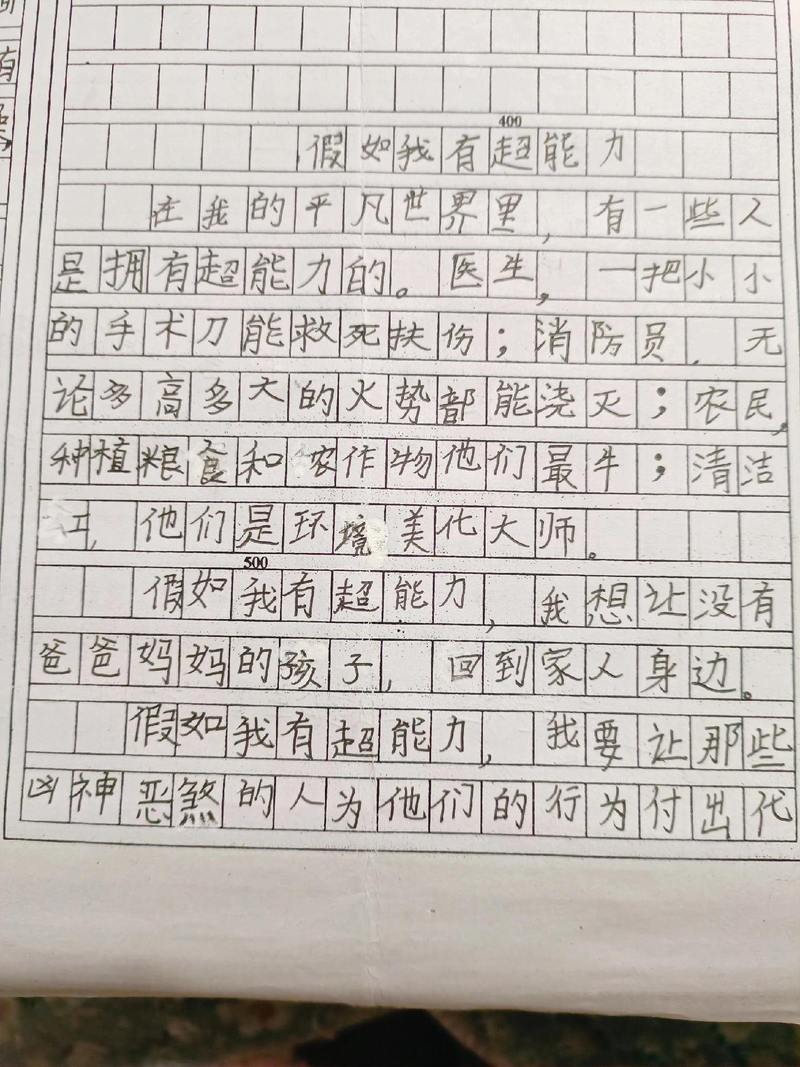 400
假如我有超能力
在我的平凡世界里，有一些人
是拥有超能力的。医生，一把小小
的手术刀能救死扶伤；消防员，无
论多高多大的火势部能浇灭；农民，
种植粮食和农作物他们最牛；清洁
工，他们是环境美化大师。
500
假如我有超能力，我想让没有
爸爸妈妈的孩子，回到家人身边。
假如我有超能力，我要让那些
凶神恶煞的人为他们的行为付出代